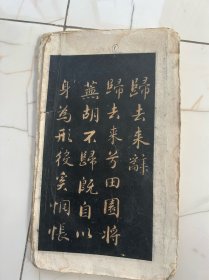 歸去来辭
歸去来兮田園將
蕪胡不歸既自以
身為形役奚惆悵